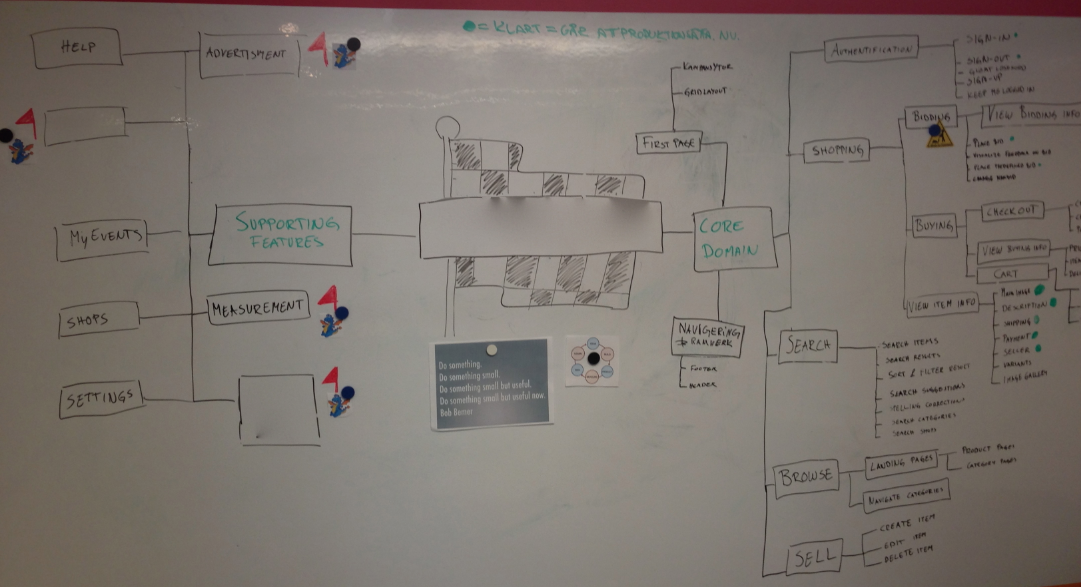 = KLART = GÅR ATT PRODUKTIONSÄTTA NU.
HELP
ADVERTISMENT
MY EVENTS
SUPPORTING
FEATURES
SHOPS
MEASUREMENT
SETTINGS
Do something.
Do something small.
Do something small but useful.
Do something small but useful now.
Bob
KAMPANJYTOR
GRIDLAYOUT
FIRST PAGE
CORE
DOMAIN
NAVIGERING
& RAMVERK
FOOTER
HEADER
AUTHENTIFICATION
SIGN-IN
SIGN-OUT
SIGN-UP
KEEP ME LOGGED IN
SHOPPING
BIDDING
VIEW BIDDING INFO
PLACE BID
BUYING
CHECKOUT
VIEW BUYING INFO
CART
VIEW ITEM INFO
DESCRIPTION
SHIPPING
PAYMENT
SELLER
VARIANTS
IMAGE GALLERY
SEARCH
SEARCH ITEMS
SEARCH RESULTS
SORT & FILTER RESULT
SEARCH SUGGESTIONS
SPELLING CORRECTIONS
SEARCH CATEGORIES
SEARCH SHOPS
BROWSE
LANDING PAGES
PRODUCT PAGES
CATEGORY PAGES
NAVIGATE CATEGORIES
SELL
CREATE ITEM
EDIT ITEM
DELETE ITEM